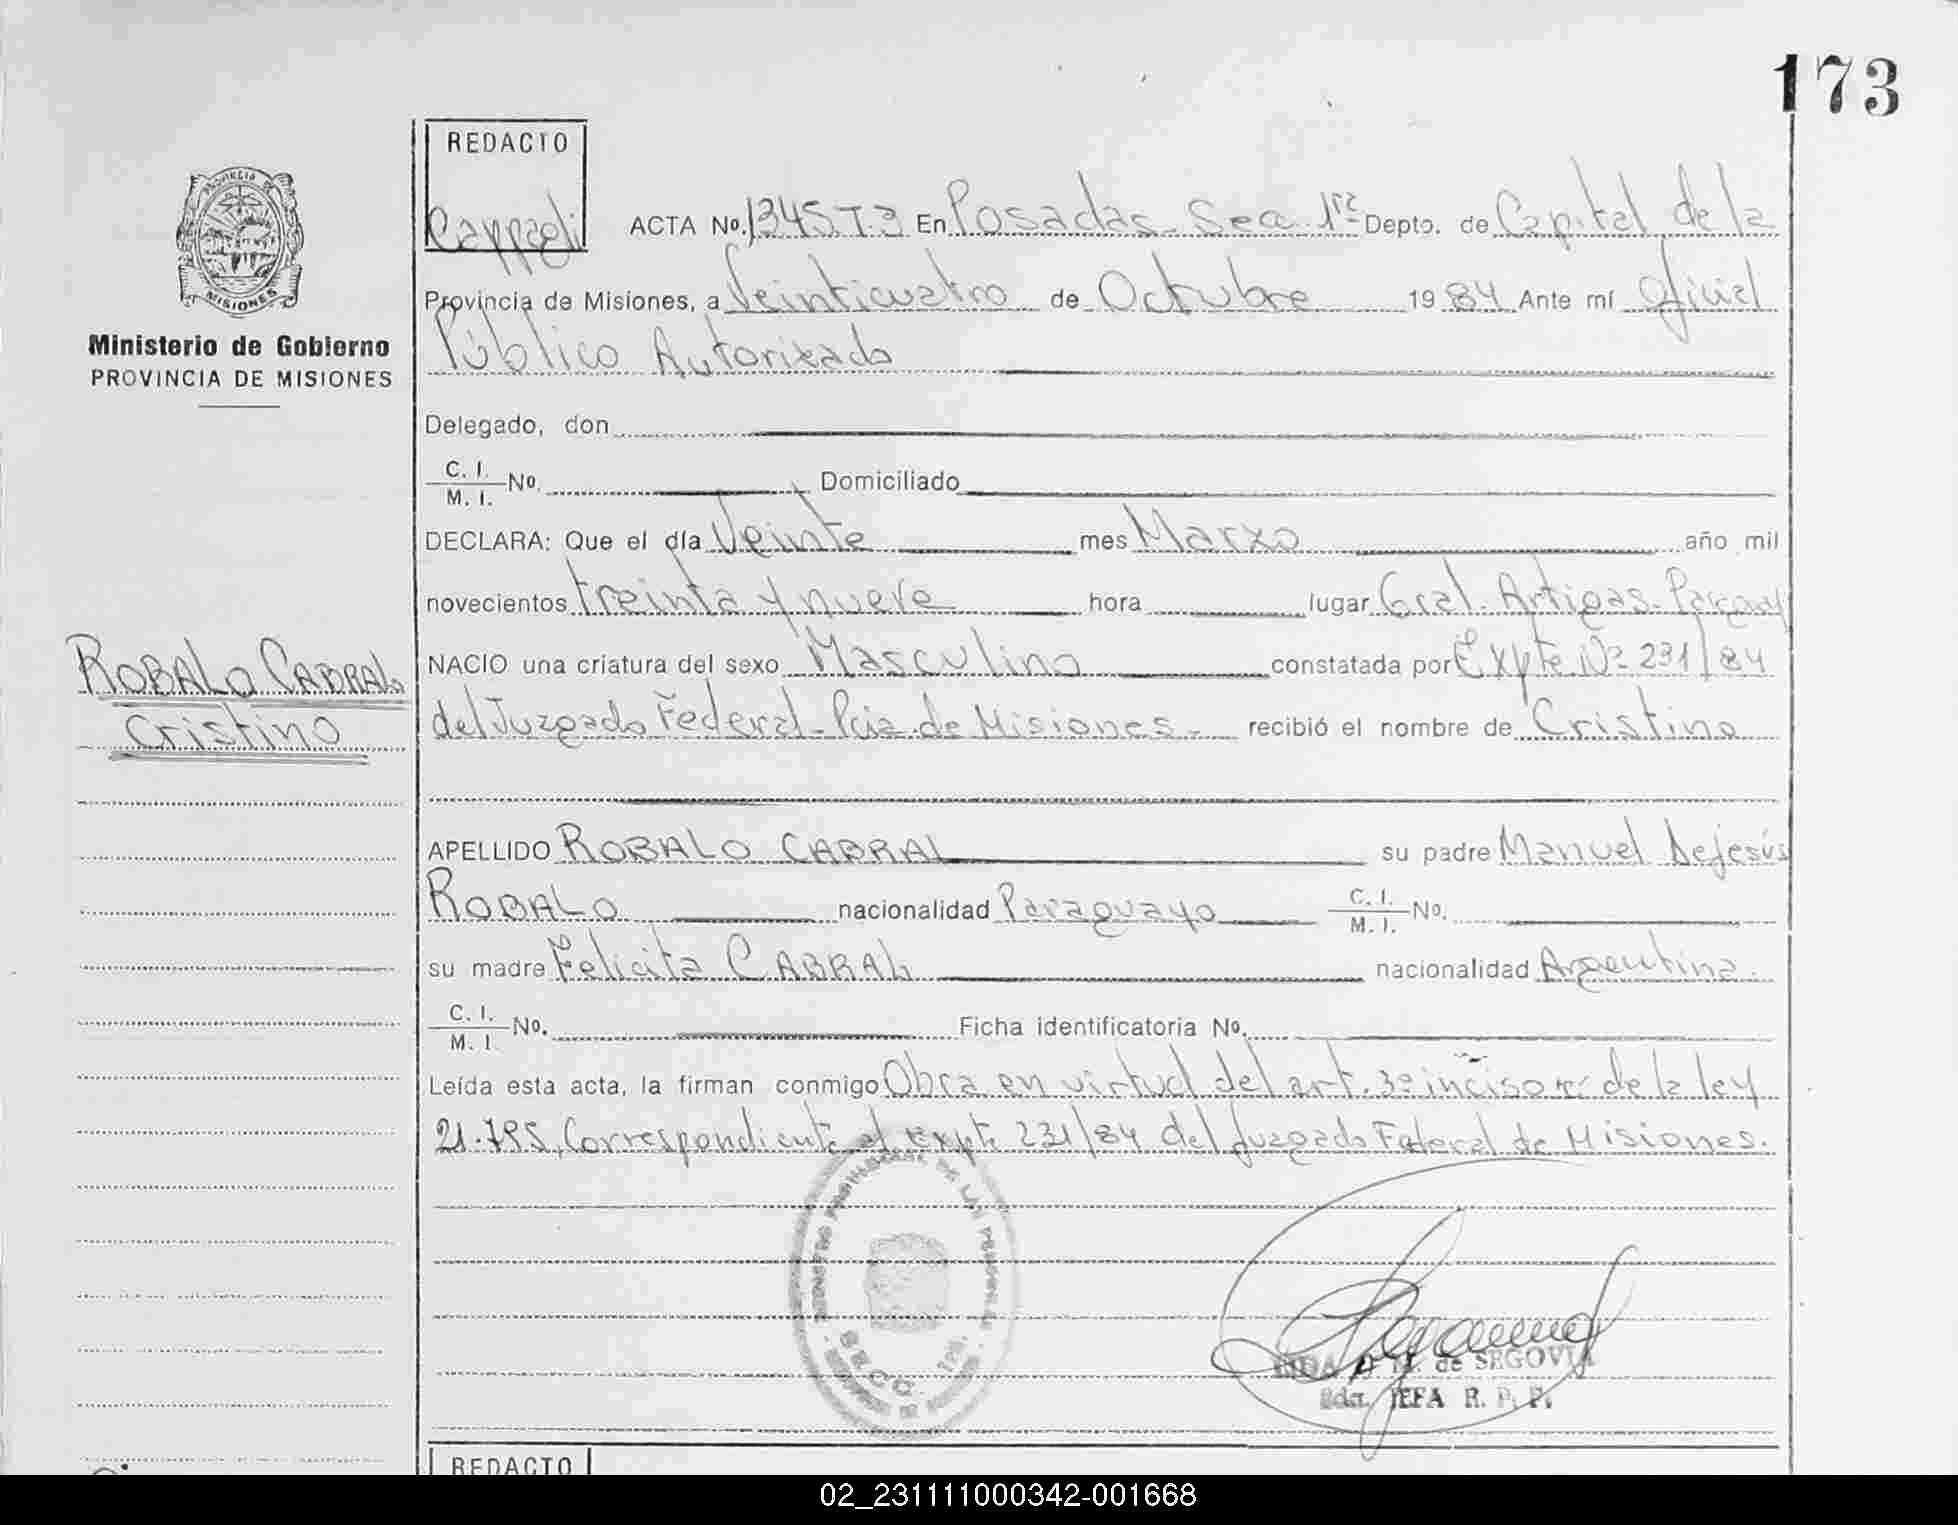 173
REDACTO
Cappagli
PROVINCIA DE
MISIONES
Ministerio de Gobierno
PROVINCIA DE MISIONES
ACTA Nº. 1345 T.3 En Posadas- Secc. 1ra Depto. de Capital de la
Provincia de Misiones, a Veinticuatro de Octubre 1984 Ante mí Oficial
Público Autorizado
Delegado, don
C. I. / M. I. Nº. Domiciliado
DECLARA: Que el día Veinte mes Marzo año mil
novecientos treinta y nueve hora lugar Gral. Artigas- Paraguay
NACIO una criatura del sexo Masculino constatada por Expte Nº 231/84
ROBALO CABRAL
Cristino
del Juzgado Federal- Pcia. de Misiones.- recibió el nombre de Cristino
APELLIDO ROBALO CABRAL su padre Manuel Dejesús
ROBALO nacionalidad Paraguayo C. I. / M. I. Nº.
su madre Felicita CABRAL nacionalidad Argentina.
C. I. / M. I. Nº. Ficha identificatoria Nº.
Leída esta acta, la firman conmigo Obra en virtud del art. 3º inciso de la ley
21.795, Correspondiente al Expte 231/84 del Juzgado Federal de Misiones.
REGISTRO PROVINCIAL DE LAS PERSONAS
SECC. 1RA.
de SEGOVIA
JEFA R. P. P.
REDACTO
02_231111000342-001668